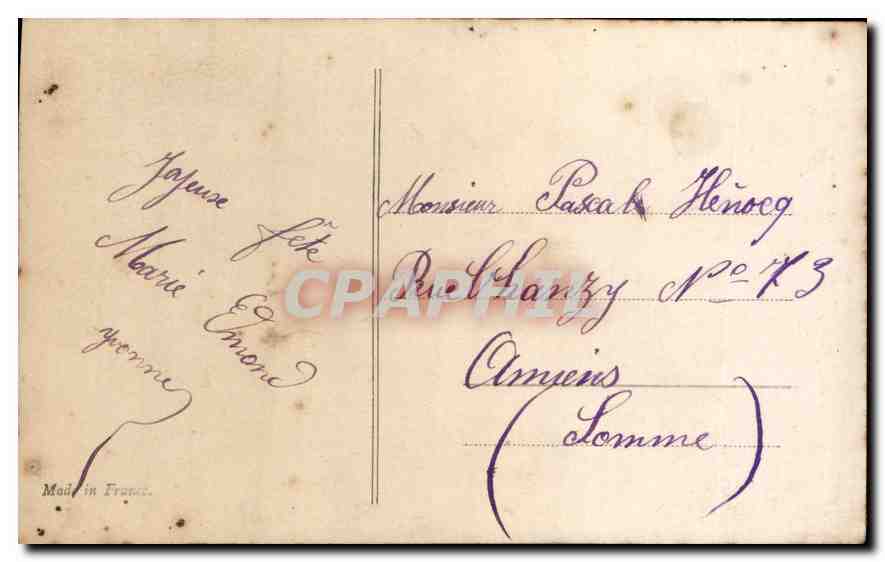 Joyeuse fête
Marie Edmond
yvonne
Made in France.
Monsieur Pascal Hénocq
Rue Chanzy No 73
Amiens
(Somme)
CPAPHIL